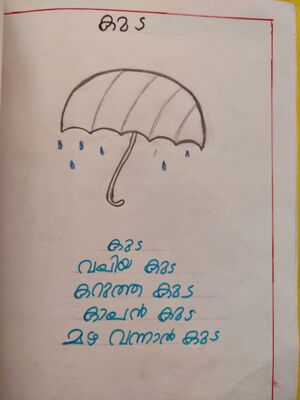 കുട
കുട
വലിയ കുട
കറുത്ത കുട
കാലൻ കുട
മഴ വന്നാൽ കുട